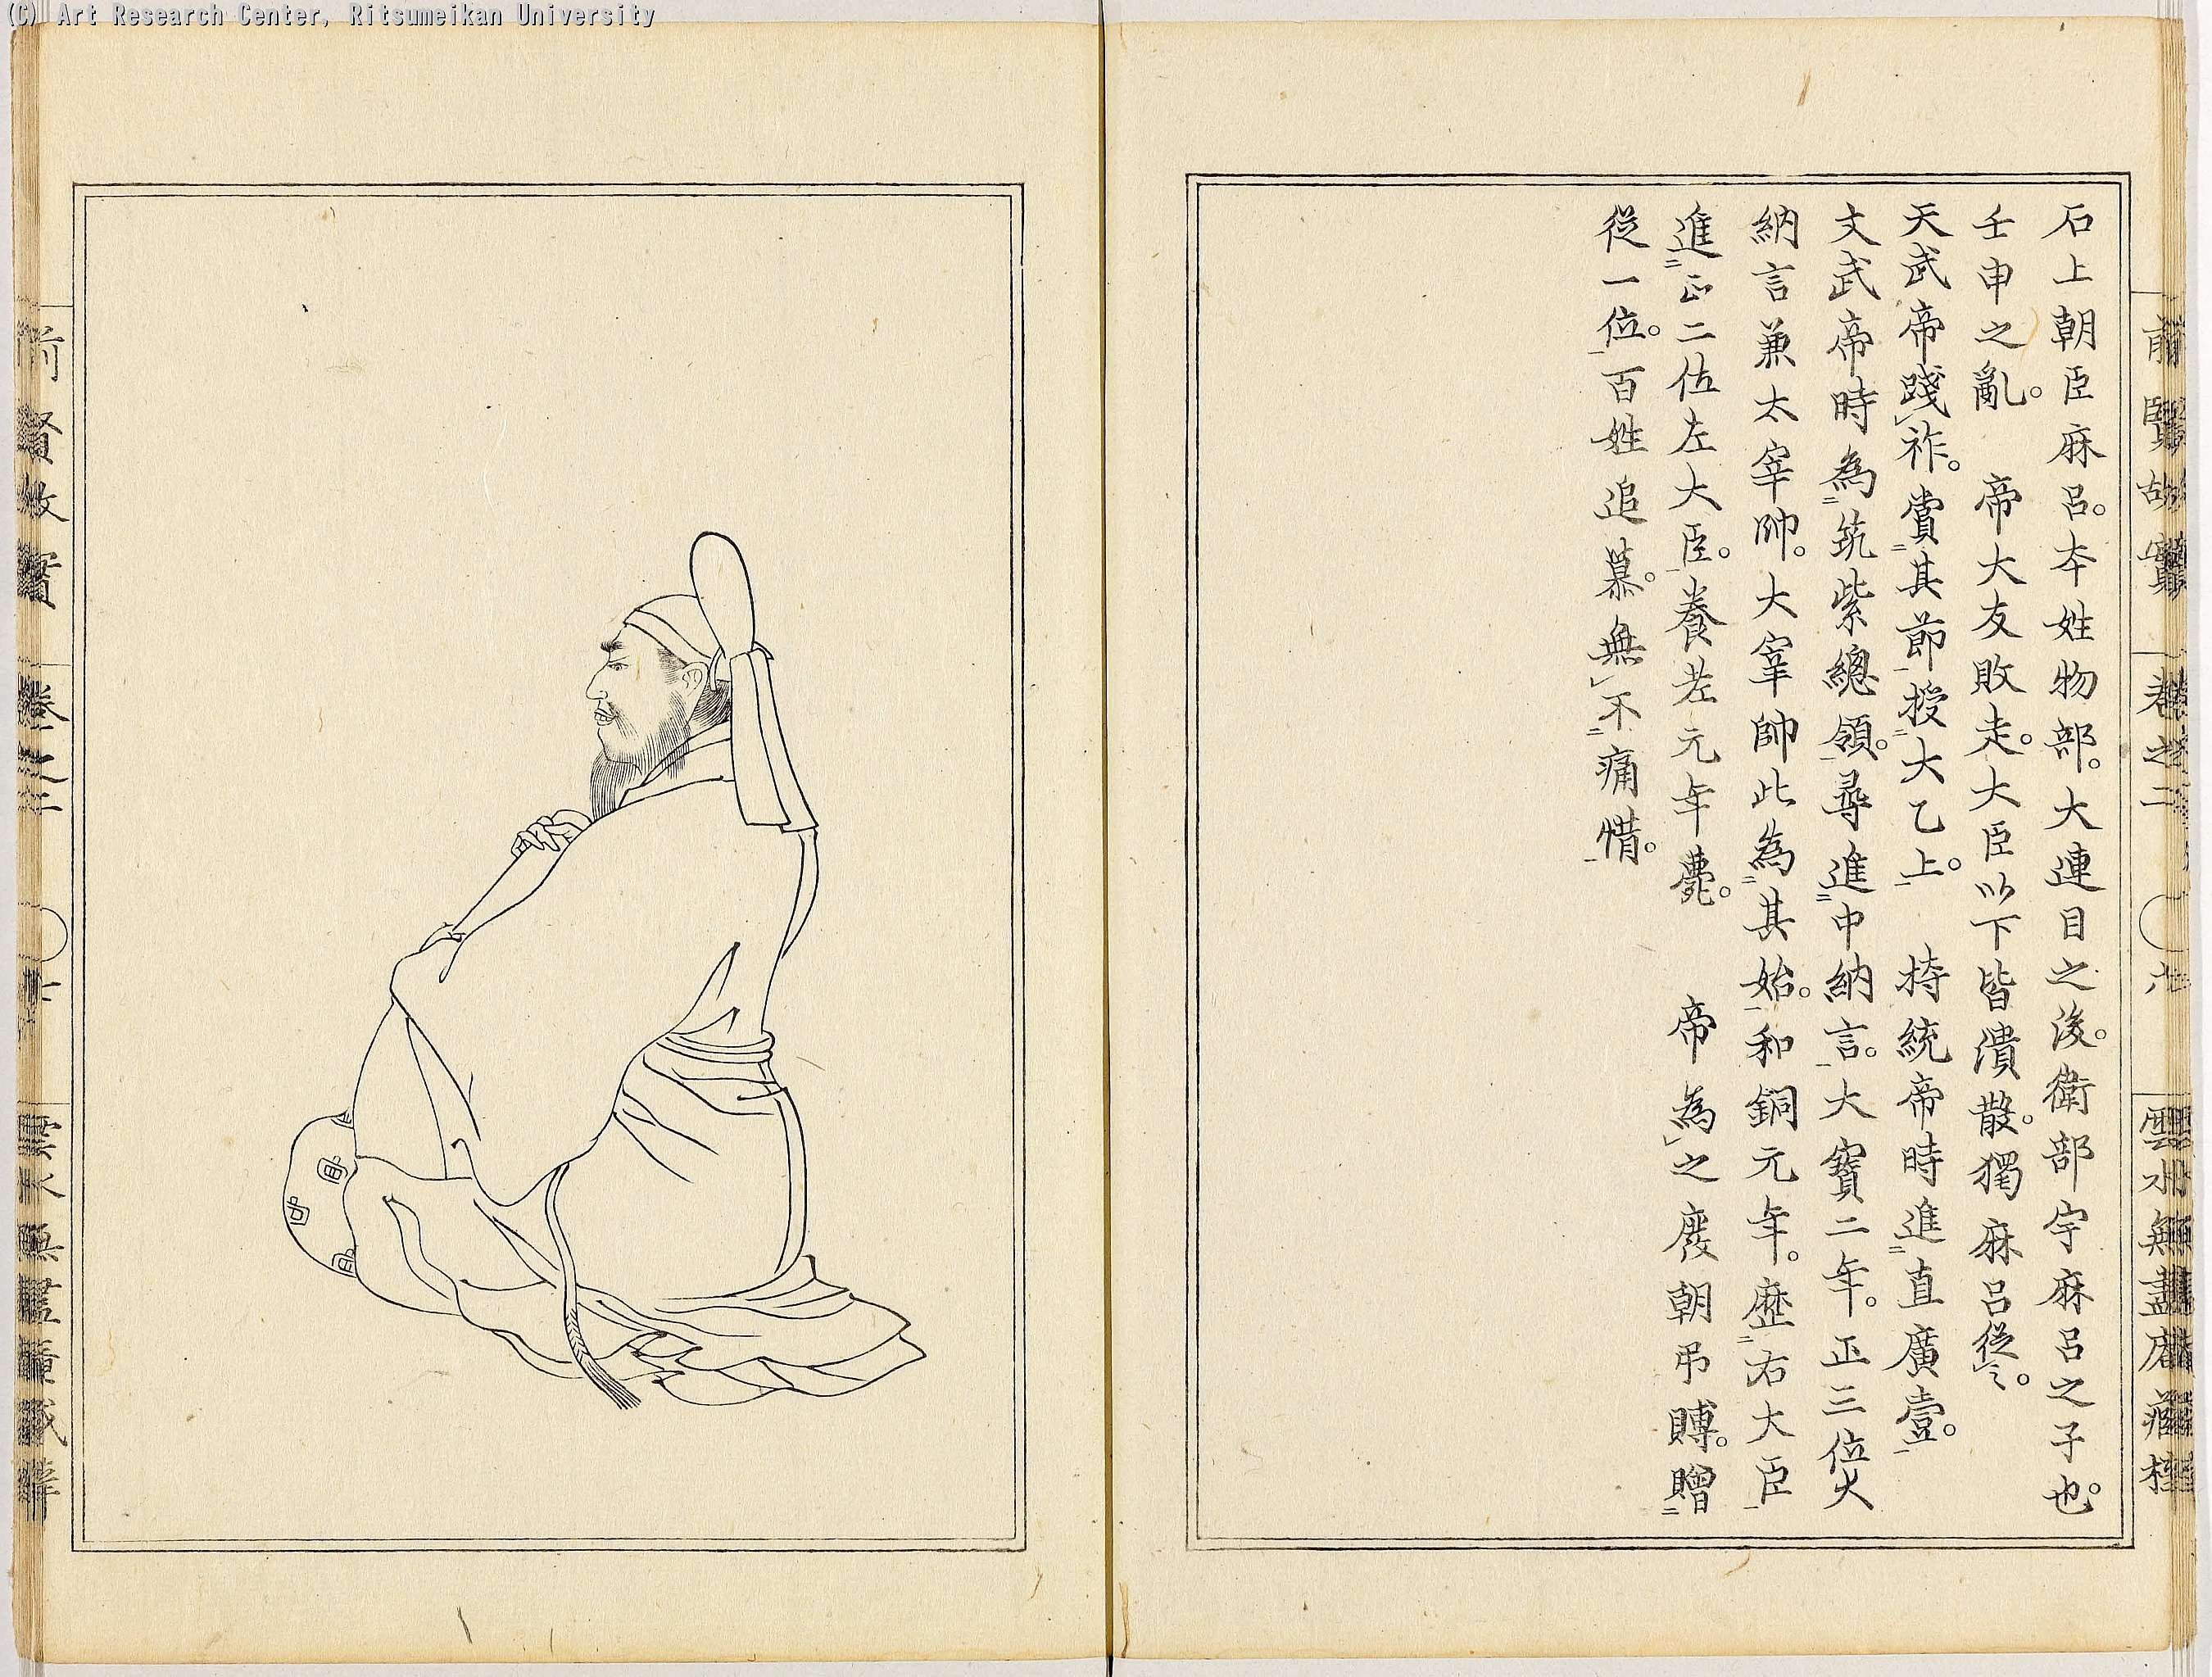 (C) Art Research Center, Ritsumeikan University
石上朝臣麻呂。本姓物部。大連目之後。衛部宇麻呂之子也。
壬申之亂。　帝大友敗走。大臣以下皆潰散。獨麻呂從之。
天武帝踐祚。賞其節授大乙上。　持統帝時進直廣壹。
文武帝時為筑紫總領。尋進中納言。大寶二年。正三位大
納言兼太宰帥。大宰帥此為其始。和銅元年。歷右大臣
進正二位左大臣。養老元年薨。　帝為之廢朝弔賻。贈
從一位。百姓追慕。無不痛惜。
前賢故實
卷之二
前賢故實
卷之二